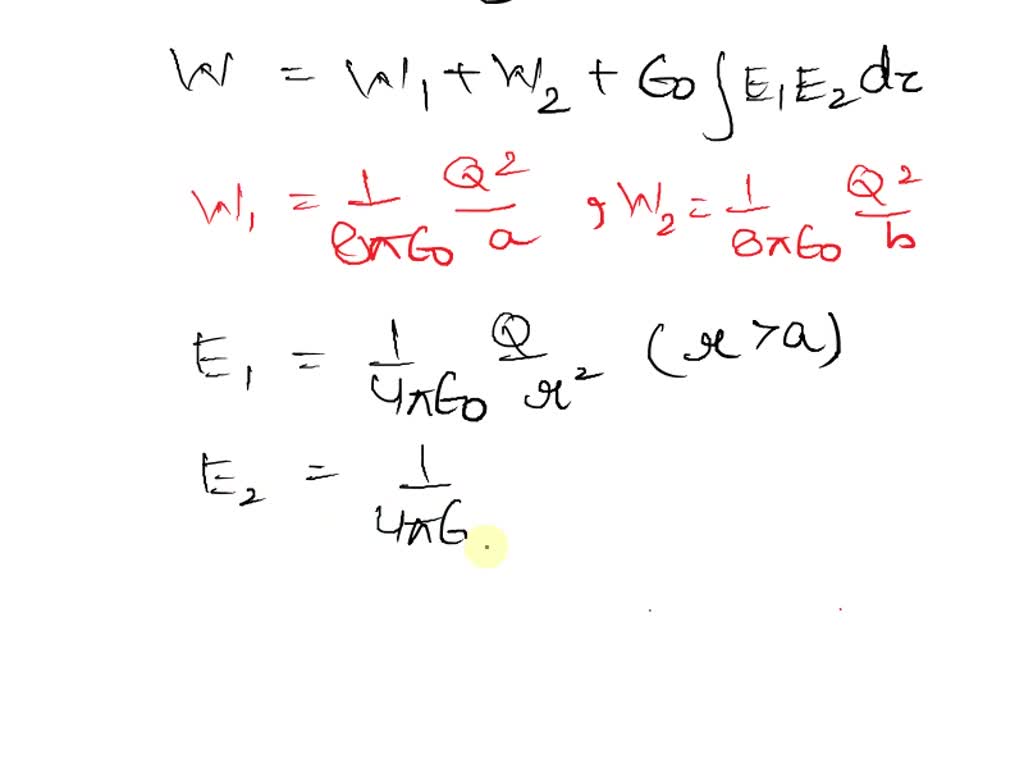 W = W₁ + W₂ + ϵ₀ ∫ E₁E₂ dτ
W₁ = 1/8πϵ₀ Q²/a , W₂ = 1/8πϵ₀ Q²/b
E₁ = 1/4πϵ₀ Q/r² (r > a)
E₂ = 1/4πϵ